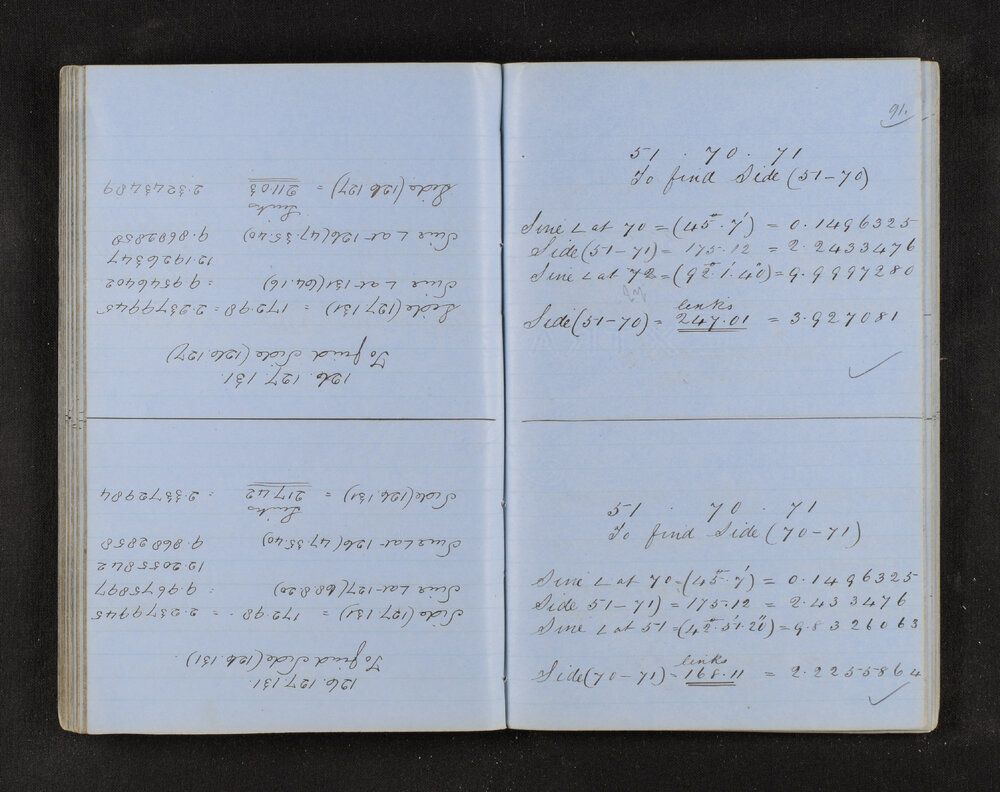 91.
51 . 70 . 71
To find Side (51-70)
Sine ∠ at 70 = (45°.7') = 0.1496325
Side (51-71) = 175.12 = 2.2433476
Sine ∠ at 72 = (92°.1'.40") = 9.9997280
links
Side (51-70) = 247.01 = 3.927081
51 . 70 . 71
To find Side (70-71)
Sine ∠ at 70 = (45°.7') = 0.1496325
Side 51-71) = 175.12 = 2.433476
Sine ∠ at 51 = (42°.51'.20") = 9.8326063
links
Side (70-71) = 168.11 = 2.2255864
126.127.131.
To find Side (126 131)
Side (127 131) = 172.98 . = 2.2379945
Sine ∠ at 127 (68.8.20) = 9.9675897
12.2055842
Sine ∠ at 126 (47.35.40) 9.8682858
Links
Side (126 131) = 217.42 = 2.3372984
126.127.131.
To find Side (126 127)
Side (127 131) = 172.98 = 2.2379945
Sine ∠ at 131 (64.16) = 9.9546402
12.1926347
Sine ∠ at 126 (47.35.40) 9.8682858
Links
Side (126 127) = 211.03 2.3243489